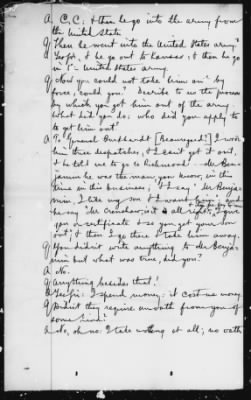 A C.C.: & then he go into the army from
the United State
Q Then he went into the United States army?
A Yes sir, & he go out to Kansas; & then he go
in U.S. United States army.
Q And you could not take him out by
force, could you? Describe to us the process
by which you got him out of the army.
What did you do; who did you apply to
to get him out?
A To General [Beauregard?] I write
him three despatches, & I can't get it out,
& he told me to go to Richmond. Mr. Ben-
jamin he was the man, you know, in this
time in this business; & I say "Mr Benja-
min, I like my son & I want him; and
he say "Mr Crenshaw, it is all right; I give
you a certificate & so you got your son
out" & then I go there & take him away.
Q You didn't write anything to Mr Benja-
min but what was true, did you?
A No.
Q Anything besides that?
A Yes sir: I spend money; it cost me money
Q Didn't they require an oath from you of
some kind?
A No, oh no: I take nothing at all; no oath